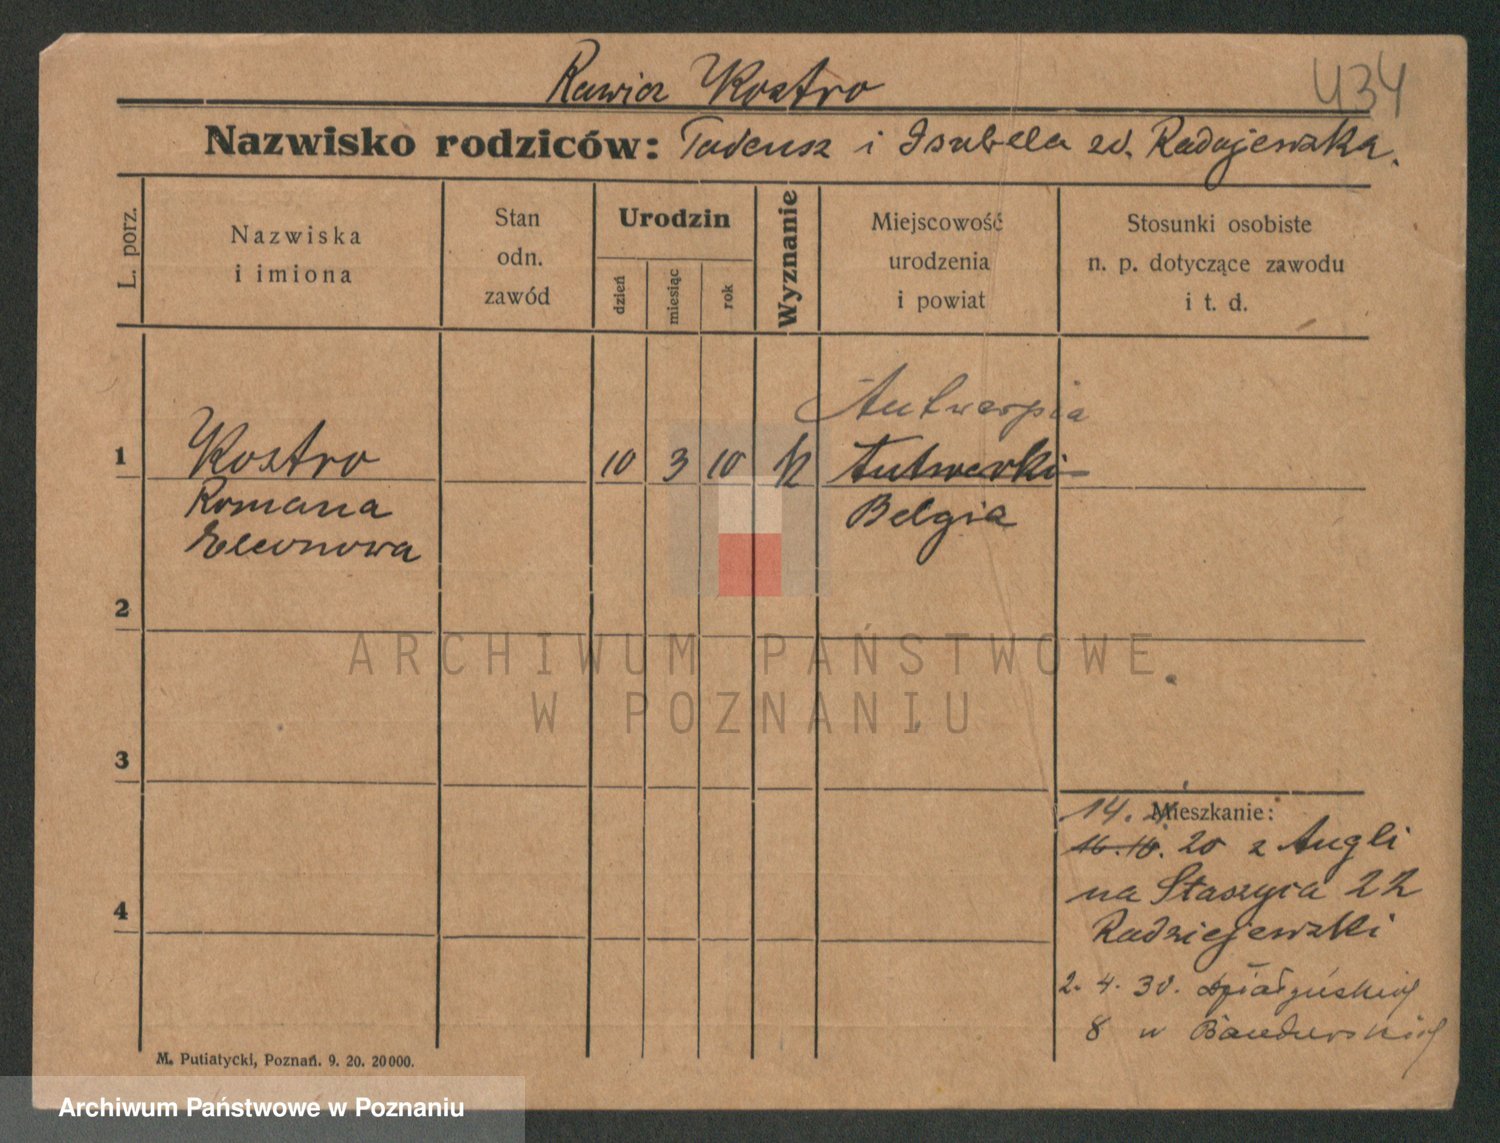 Rawicz Kostro
434
Nazwisko rodziców: Tadeusz i Isabela zd. Radojewska.
L. porz.
Nazwiska
i imiona
Stan
odn.
zawód
Urodzin
dzień
miesiąc
rok
Wyznanie
Miejscowość
urodzenia
i powiat
Stosunki osobiste
n. p. dotyczące zawodu
i t. d.
Antwerpia
1 Kostro 10 3 10 k Antwerki
Romana Belgia
Eleonowa
2
ARCHIWUM PAŃSTWOWE
W POZNANIU
3
Mieszkanie:
14.
16. 10. 20 z Angli
na Staszyca 22
4
Radziejewski
2. 4. 30. Działyńskich
8 w Bandurskich
M. Putiatycki, Poznań. 9. 20. 20000.
Archiwum Państwowe w Poznaniu